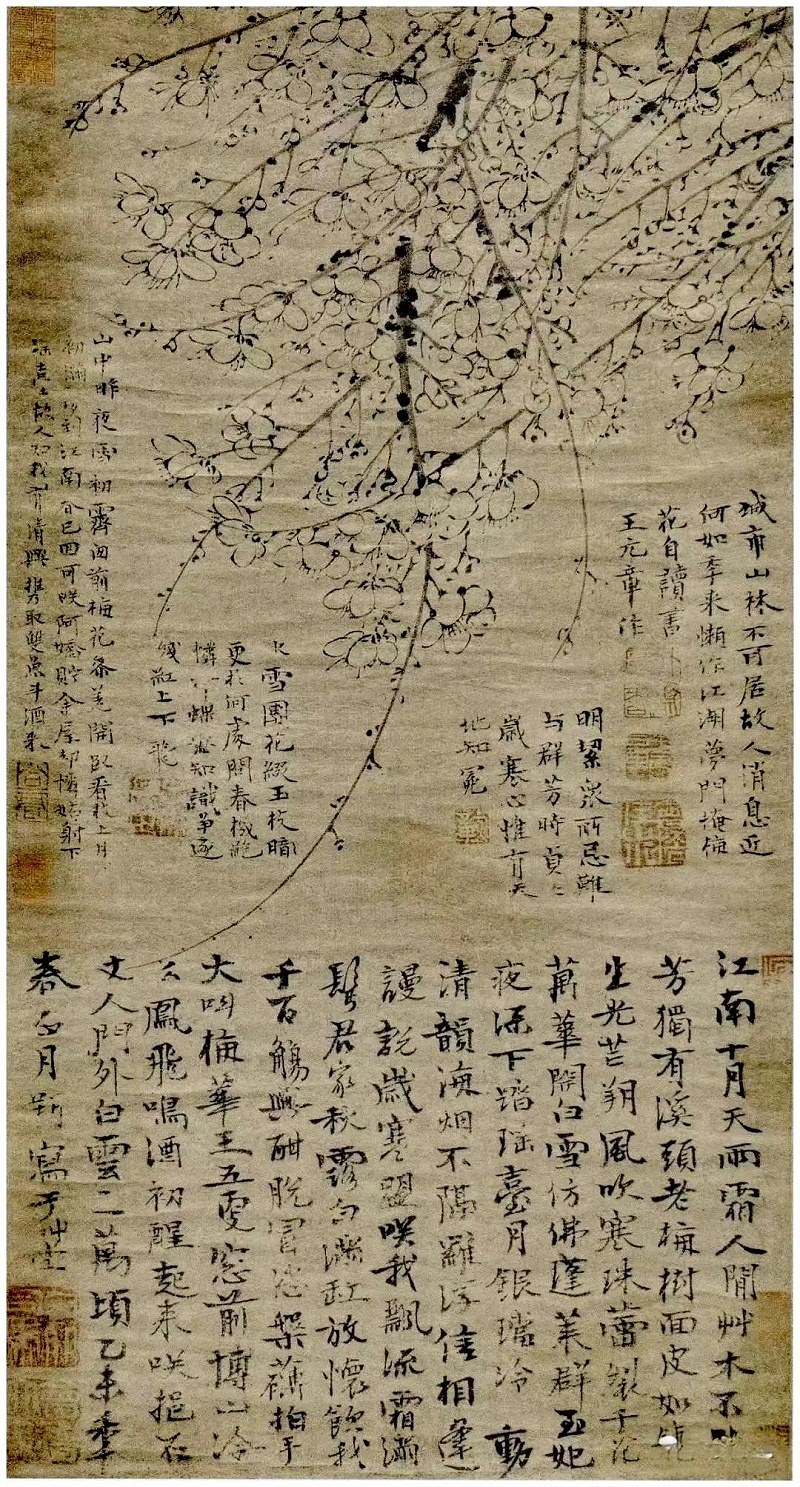 城市山林不可居故人消息近
何如年来懶作江湖夢門掩梅
花自讀書
王元章作
明潔衆所忌難
与群芳時貞〻
歲寒心惟有天
地知
冰雪團花綴玉枝暗
更於何處問春機
憐蜂蝶知識爭逐
殘紅上下飛
山中昨夜雪初霽囱前梅花參差開臥看枝上月
到江南春已回可咲阿嬌貯金屋却憐姑射下
瑤臺故人知我有清興攜取雙魚斗酒来
江南十月天雨霜人間艸木不敢
芳獨有溪頭老梅樹面皮如鐵
生光芒朔風吹寒珠蕾裂千花
萬華開白雪仿佛蓬萊群玉妃
夜深下踏瑤臺月銀璫泠動
清韻海烟不隔羅浮信相逢
謾說歲寒盟咲我飄流霜滿
鬢君家秋露白滿缸放懷飲我
千百觴興酣脫冐恣槃礴拍手
大叫梅華王五更窓前博山冷
么鳳飛鳴酒初醒起来咲挹石
丈人門外白雲二萬頃乙未年
春正月朔寫于艸堂